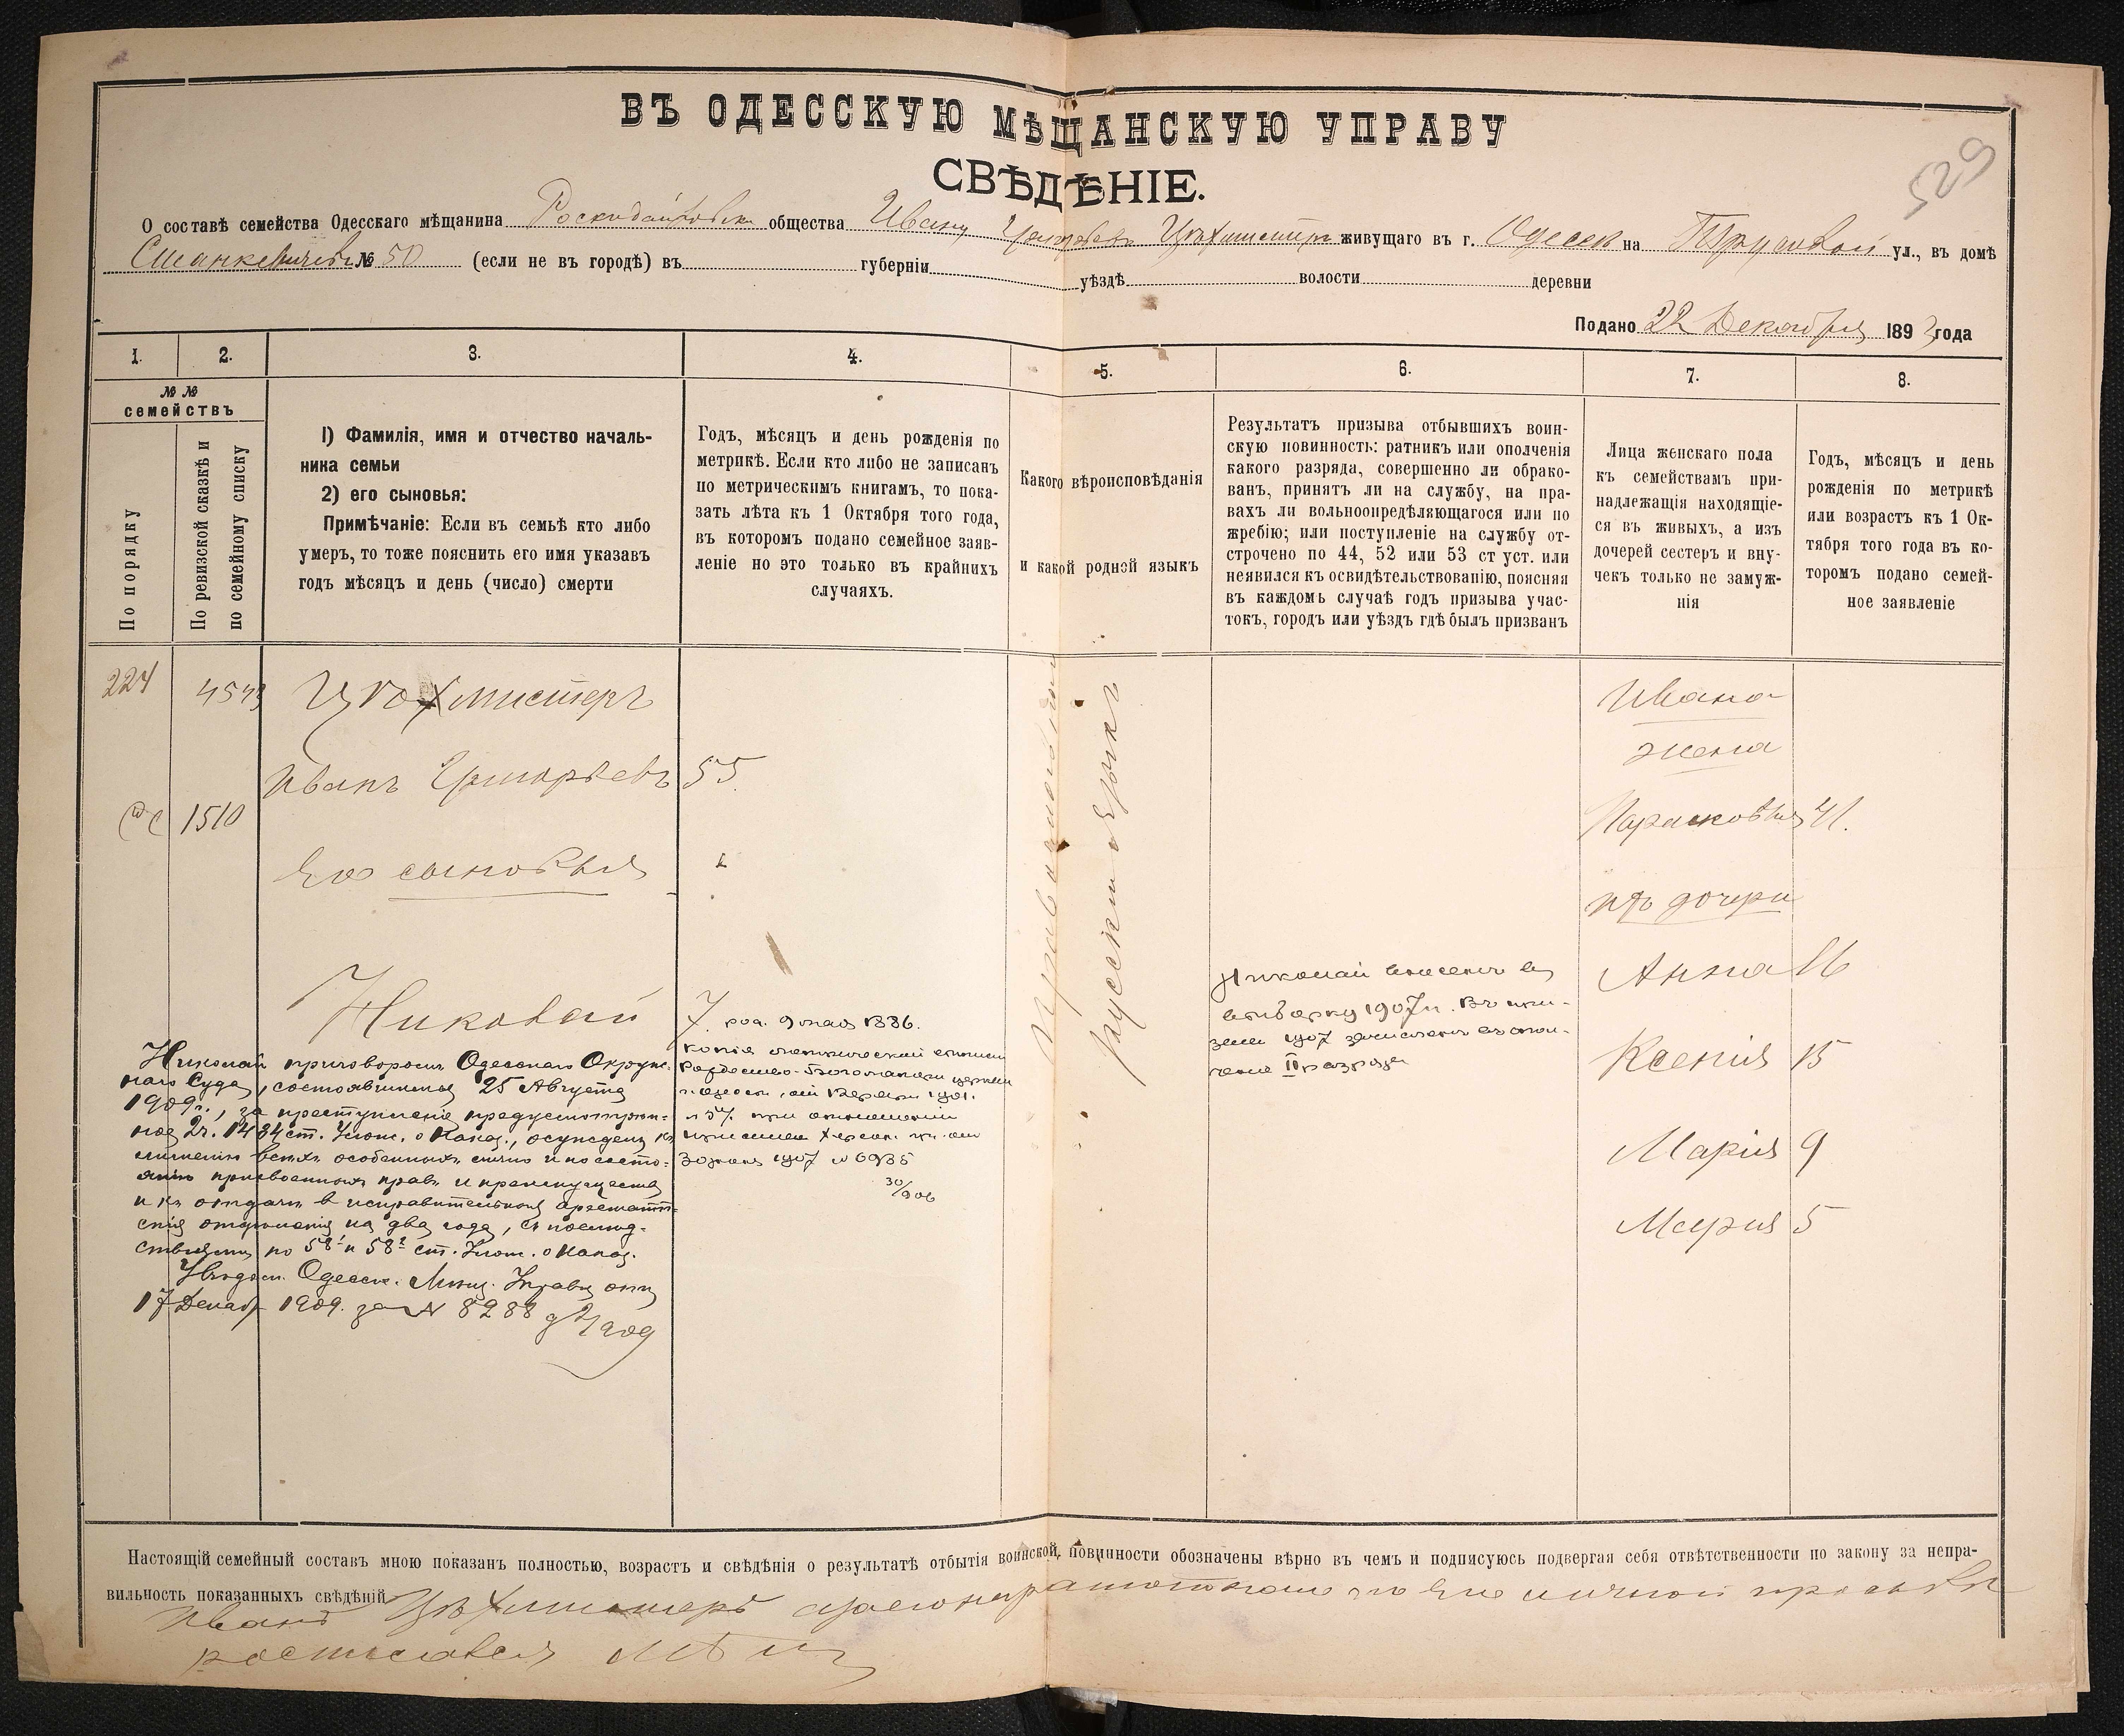 ВЪ ОДЕССКУЮ МѢЩАНСКУЮ УПРАВУ
СВѢДѢНІЕ.
529
О составѣ семейства Одесскаго мѣщанина общества Ивана Григорьева живущаго въ г. Одессѣ на ул., въ домѣ
№ 50 (если не въ городѣ) въ губерніи уѣздѣ волости деревни
Подано 22 Декабря 1893 года
1. 2. 3. 4. 5. 6. 7. 8.
№ №
семействъ
По порядку
По ревизской сказкѣ и
по семейному списку
1) Фамилія, имя и отчество началь-
ника семьи
2) его сыновья:
Примѣчаніе: Если въ семьѣ кто либо
умеръ, то тоже пояснить его имя указавъ
годъ мѣсяцъ и день (число) смерти
Годъ, мѣсяцъ и день рожденія по
метрикѣ. Если кто либо не записанъ
по метрическимъ книгамъ, то пока-
зать лѣта къ 1 Октября того года,
въ которомъ подано семейное заяв-
леніе но это только въ крайнихъ
случаяхъ.
Какого вѣроисповѣданія
и какой родной языкъ
Результатъ призыва отбывшихъ воин-
скую повинность: ратникъ или ополченія
какого разряда, совершенно ли обрако-
ванъ, принятъ ли на службу, на пра-
вахъ ли вольноопредѣляющагося или по
жребію; или поступленіе на службу от-
строчено по 44, 52 или 53 ст уст. или
неявился къ освидѣтельствованію, поясняя
въ каждомъ случаѣ годъ призыва учас-
токъ, городъ или уѣздъ гдѣ былъ призванъ
Лица женскаго пола
къ семействамъ при-
надлежащія находящіе-
ся въ живыхъ, а изъ
дочерей сестеръ и вну-
чекъ только не замуж-
нія
Годъ, мѣсяцъ и день
рожденія по метрикѣ
или возрастъ къ 1 Ок-
тября того года въ ко-
торомъ подано семей-
ное заявленіе
224
Иванъ Григорьевъ 55.
1510
Его сыновья
Николай
7. род. 9 мая 1886.
Николай приговоромъ Одесскаго Окруж-
наго Суда, состоявшимся 25 Августа
1909г., за преступленіе предусмотрѣн-
ное 2 ч. 1484 ст. Улож. о Наказ., осужденъ къ
лишенію всѣхъ особенныхъ лично и по состо-
янію присвоенныхъ правъ и преимуществъ
и къ отдачѣ в исправительныя арестант-
скія отдѣленія на два года, съ послѣд-
ствіями по 58¹ и 58² ст. Улож. о Наказ.
Увѣдом. Одесск. Мѣщ. Управы отъ
17 Декабр 1909. за № 8288
копія метрической выписи
Рождество-Богородичн церкви
30 іюня 1907 № 6935
30/906
Православнаго
Русскій Языкъ
Николай внесенъ въ
1907 г. Въ
1907 зачисленъ въ опол-
ченіе II разряда
Ивана
жена
Парасковья 41.
ихъ дочери
Анна 16
Ксенія 15
Марія 9
Марія 5
Настоящій семейный составъ мною показанъ полностью, возрастъ и свѣдѣнія о результатѣ отбытія воинской повинности обозначены вѣрно въ чемъ и подписуюсь подвергая себя отвѣтственности по закону за непра-
вильность показанныхъ свѣдѣній
Иванъ по его личной просьбѣ
росписался